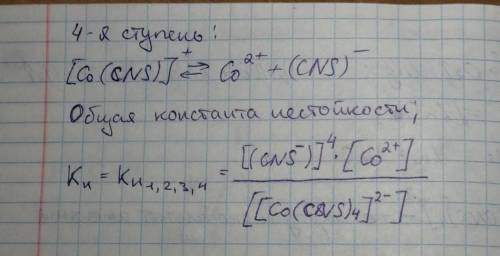 4-я ступень:
[Co(CNS)]⁺ ⇄ Co²⁺ + (CNS)⁻
Общая константа нестойкости;
Kн = Kн₁,₂,₃,₄ = [(CNS⁻)]⁴ · [Co²⁺] / [[Co(CNS)₄]²⁻]